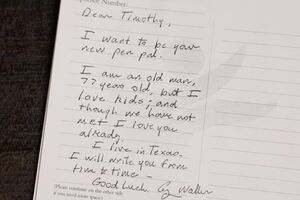 Sponsor Number:
Dear Timothy,
I want to be your
new pen pal.
I am an old man,
77 years old, but I
love kids; and
though we have not
met I love you
already.
I live in Texas -
I will write you from
time to time -
Good Luck. G. Walker
(Please continue on the other side
if you need more space)